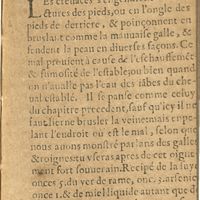 LEs creuaces s'engendrent
ctures des pieds, ou en l'ongle des
pieds de derriere, & poinçonnent en
bruslant comme la mauuaise galle, &
fendent la peau en diuerses façons. Ce
mal prouient à cause de l'eschauffemẽt
& fumosité de l'estable; ou bien quand
on n'aualle pas l'eau des iãbes du cheual
establé. Il se panse comme celuy
du chapitre precedent, sauf qu'icy il ne
faut lierne brusler la veine: mais en pelant
l'endroit où est le mal, selon que
nous auons monstré parlans des galles
& roignes: tu vseras apres de cet oiguement
fort souuerain. Recipé de la suye
onces 5. du ver de rame, onc; 3. arsenic
once 1. & de miel liquide autant que de